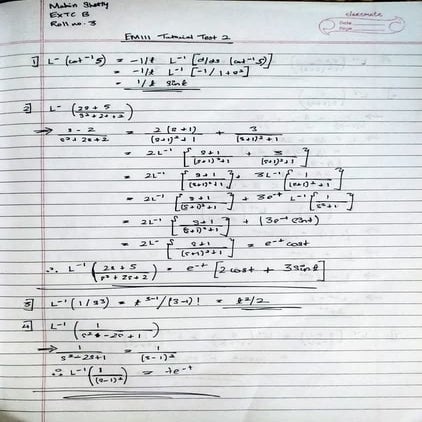 Mahin Shetty
EXTC B
Roll no. 3
classmate
Date
Page
EM III Tutorial Test 2
1] L⁻ (cot⁻¹ s) = -1/t L⁻¹ [d/ds (cot⁻¹ s)]
= -1/t L⁻¹ [-1/1+s²]
= 1/t sint
2] L⁻ (2s + 5 / s²+2s+2)
→ s - 2 / s²+2s+2 = 2(s+1) / (s+1)²+1 + 3 / (s+1)²+1
= 2L⁻¹ [s+1 / (s+1)²+1 + 3 / (s+1)²+1]
= 2L⁻¹ [s+1 / (s+1)²+1] + 3L⁻¹ [1 / (s+1)²+1]
= 2L⁻¹ [s+1 / (s+1)²+1] + 3e⁻ᵗ L⁻¹ [1 / s²+1]
= 2L⁻¹ [s+1 / (s+1)²+1] + (3e⁻ᵗ sint)
= 2L⁻ [s+1 / (s+1)²+1] = e⁻ᵗ cost
∴ L⁻¹ (2s + 5 / s²+2s+2) = e⁻ᵗ [2cost + 3sint]
3] L⁻¹ (1/s3) = t³⁻¹/(3-1)! = t²/2
4] L⁻¹ (1 / s² - 2s + 1)
→ 1 / s²-2s+1 = 1 / (s-1)²
∴ L⁻¹ (1 / (s-1)²) = te⁻ᵗ